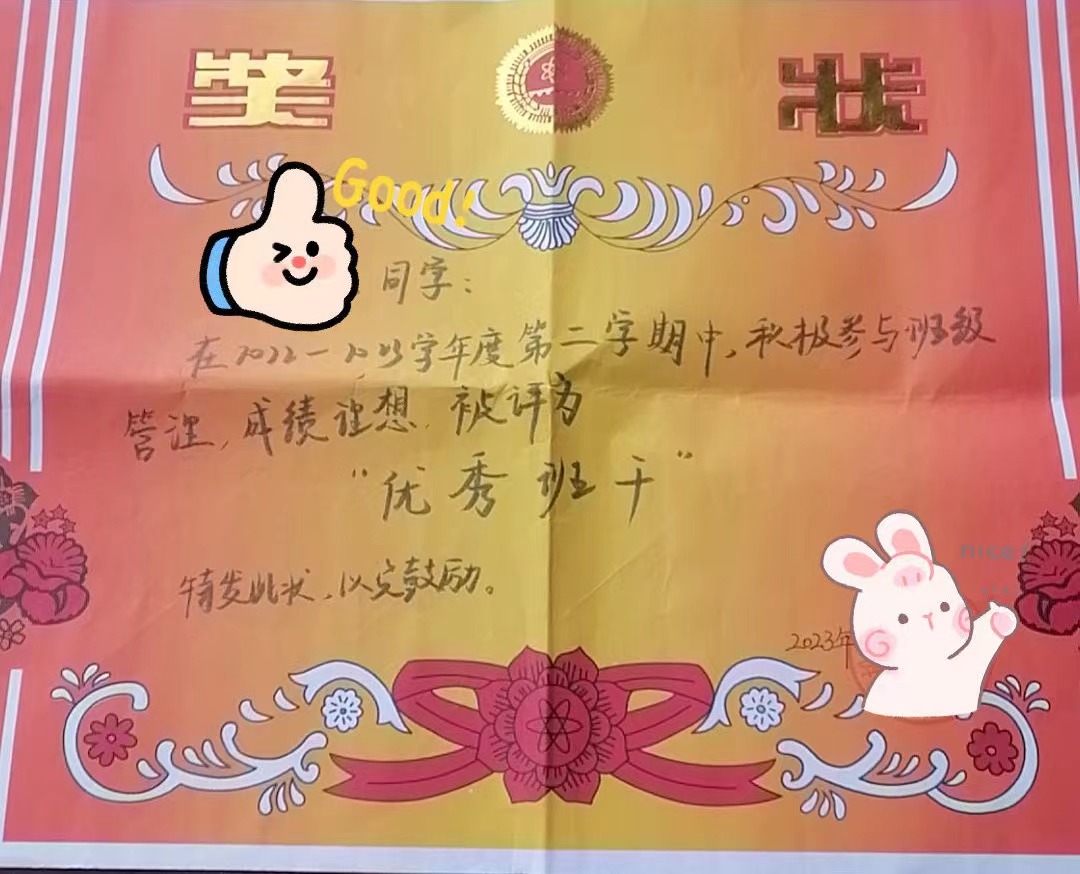 奖 状
Good!
同学：
在2022-2023学年度第二学期中，积极参与班级
管理，成绩理想，被评为
“优秀班干”
特发此状，以资鼓励。
Nice!
2023年